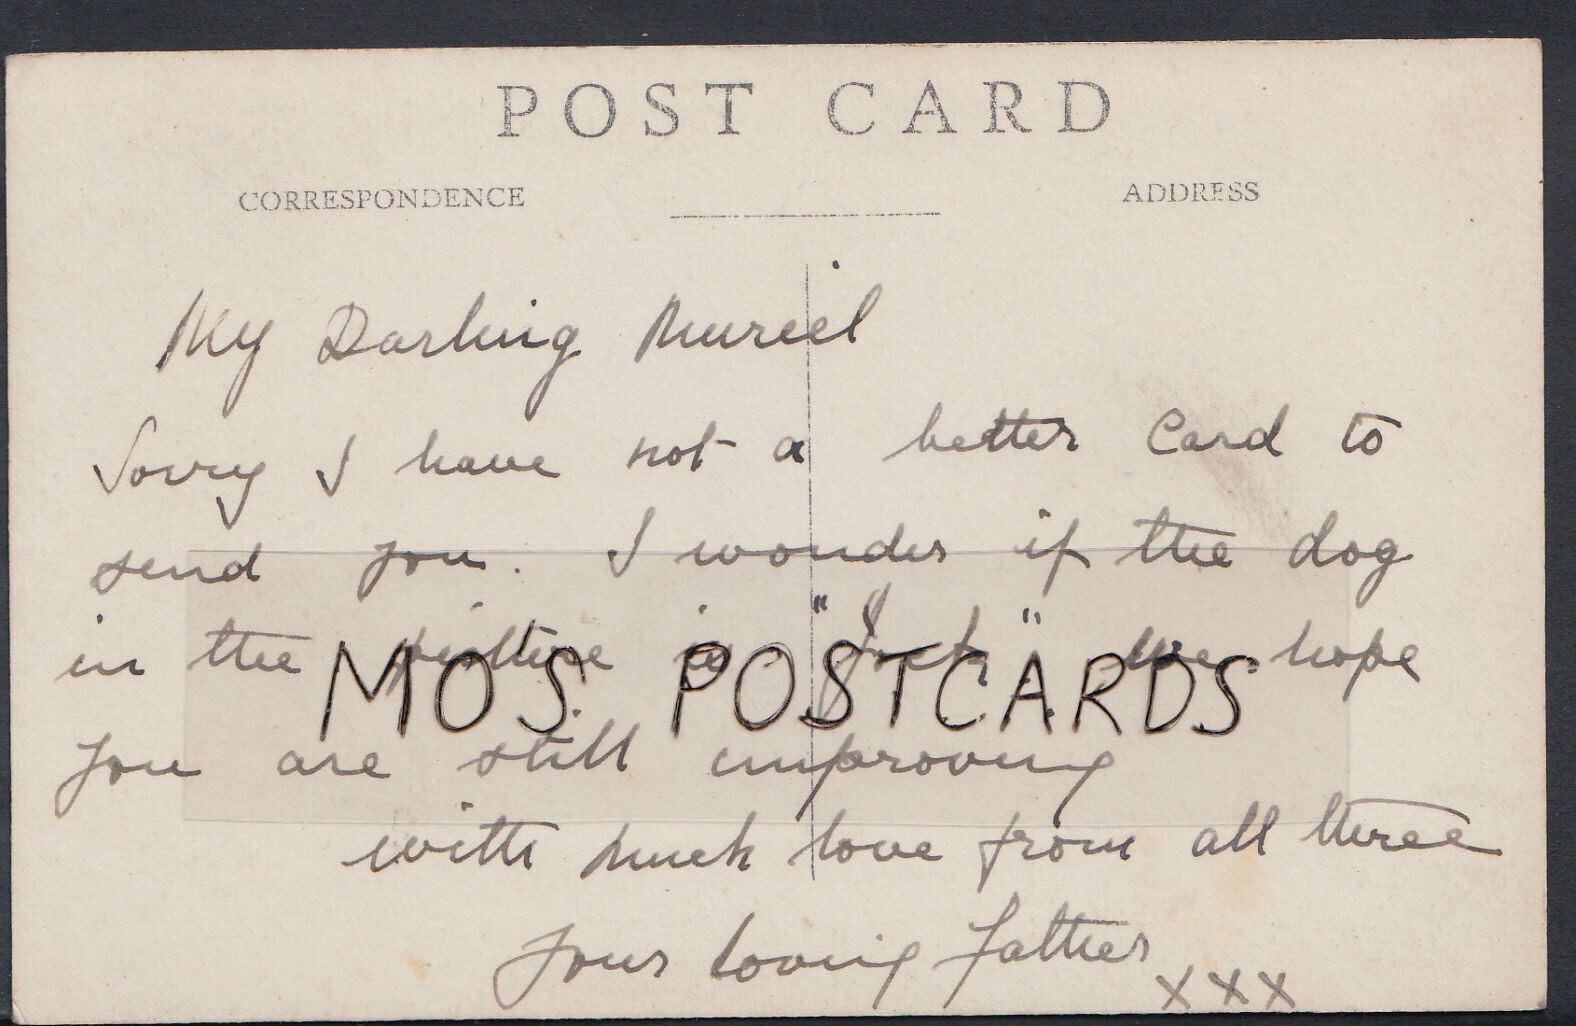 POST CARD
CORRESPONDENCE ADDRESS
My Darling Muriel
Sorry I have not a better Card to
send you. I wonder if the dog
in the picture is "Jock" We hope
MO'S POSTCARDS
you are still improving
with much love from all three
your loving father
xxx